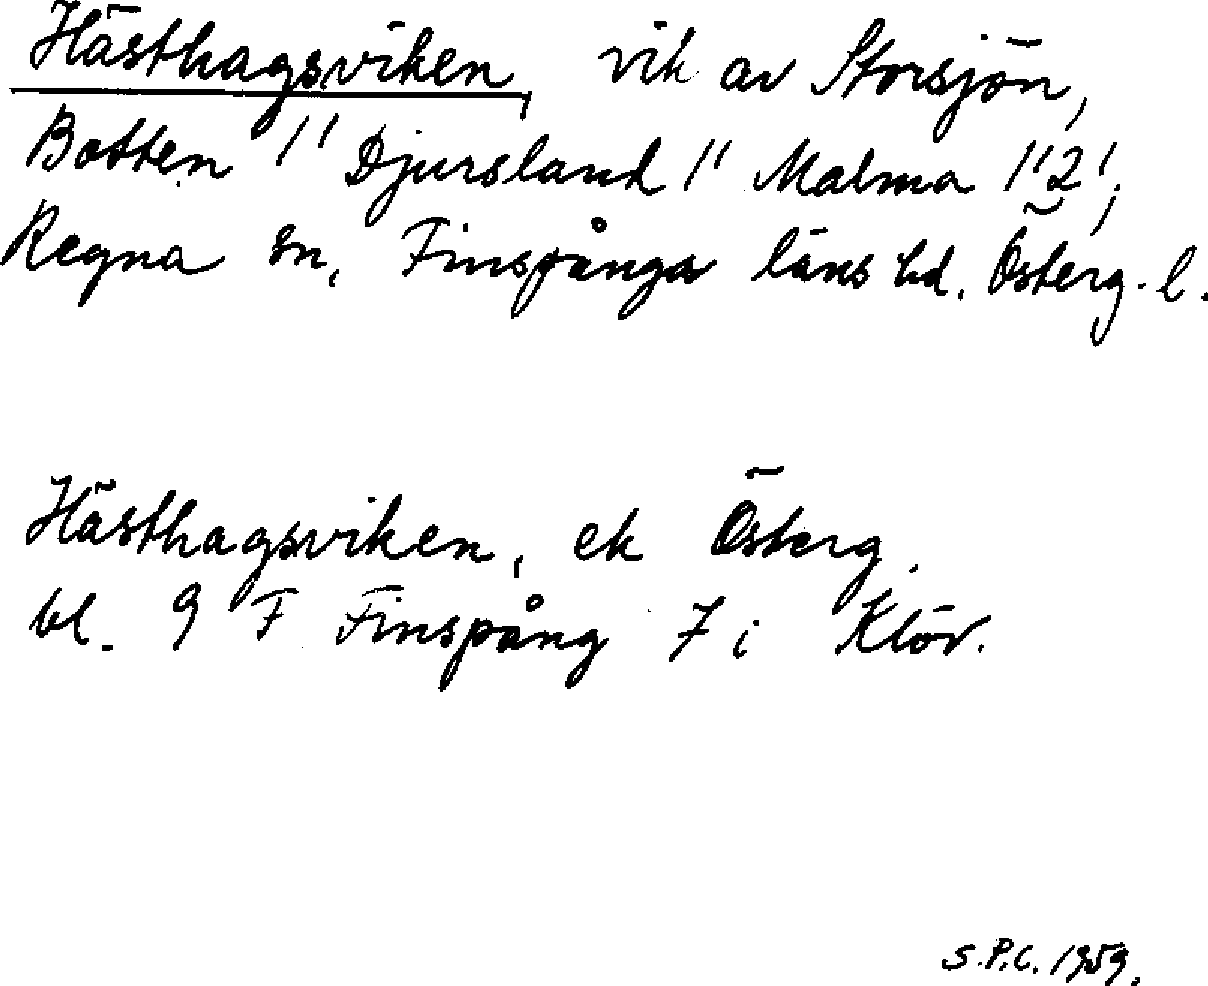 Hästhagsviken, vik av Storsjön,
Botten 1'' Djursland 1'' Malma 1''2',
Regna sn, Finspånga läns hd. Österg. l.
Hästhagsviken, ek Österg.
bl. 9 F Finspång 7 i Klöv.
S.P.C. 1959.